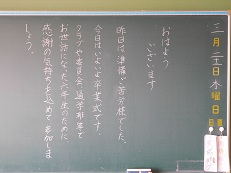 三月二十日木曜日
日直
おはよう
ございます
昨日は準備ご苦労様でした。
今日はいよいよ卒業式です。
クラブや委員会、通学班等で
お世話になった六年生のために
感謝の気持ちを込めて参加しま
しょう。